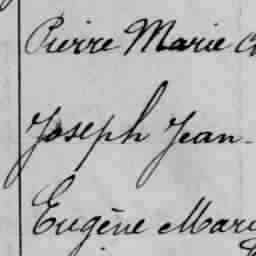 Pierre Marie
Joseph Jean-
Eugène Mari